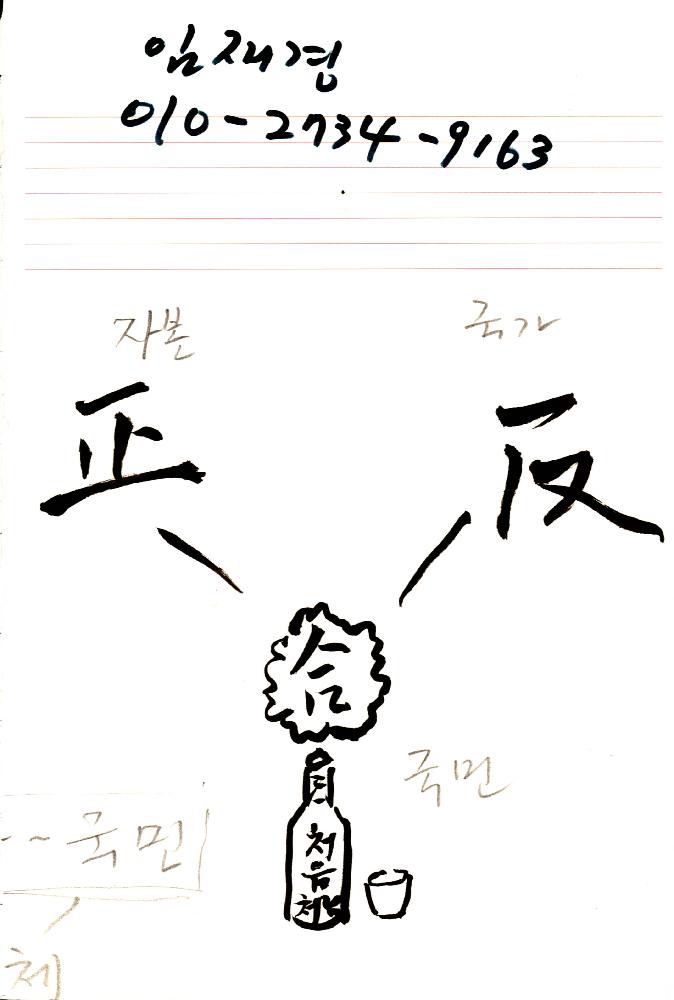 임재경
010-2734-9163
자본
국가
正
反
合
국민
~~국민
처음
처럼
체